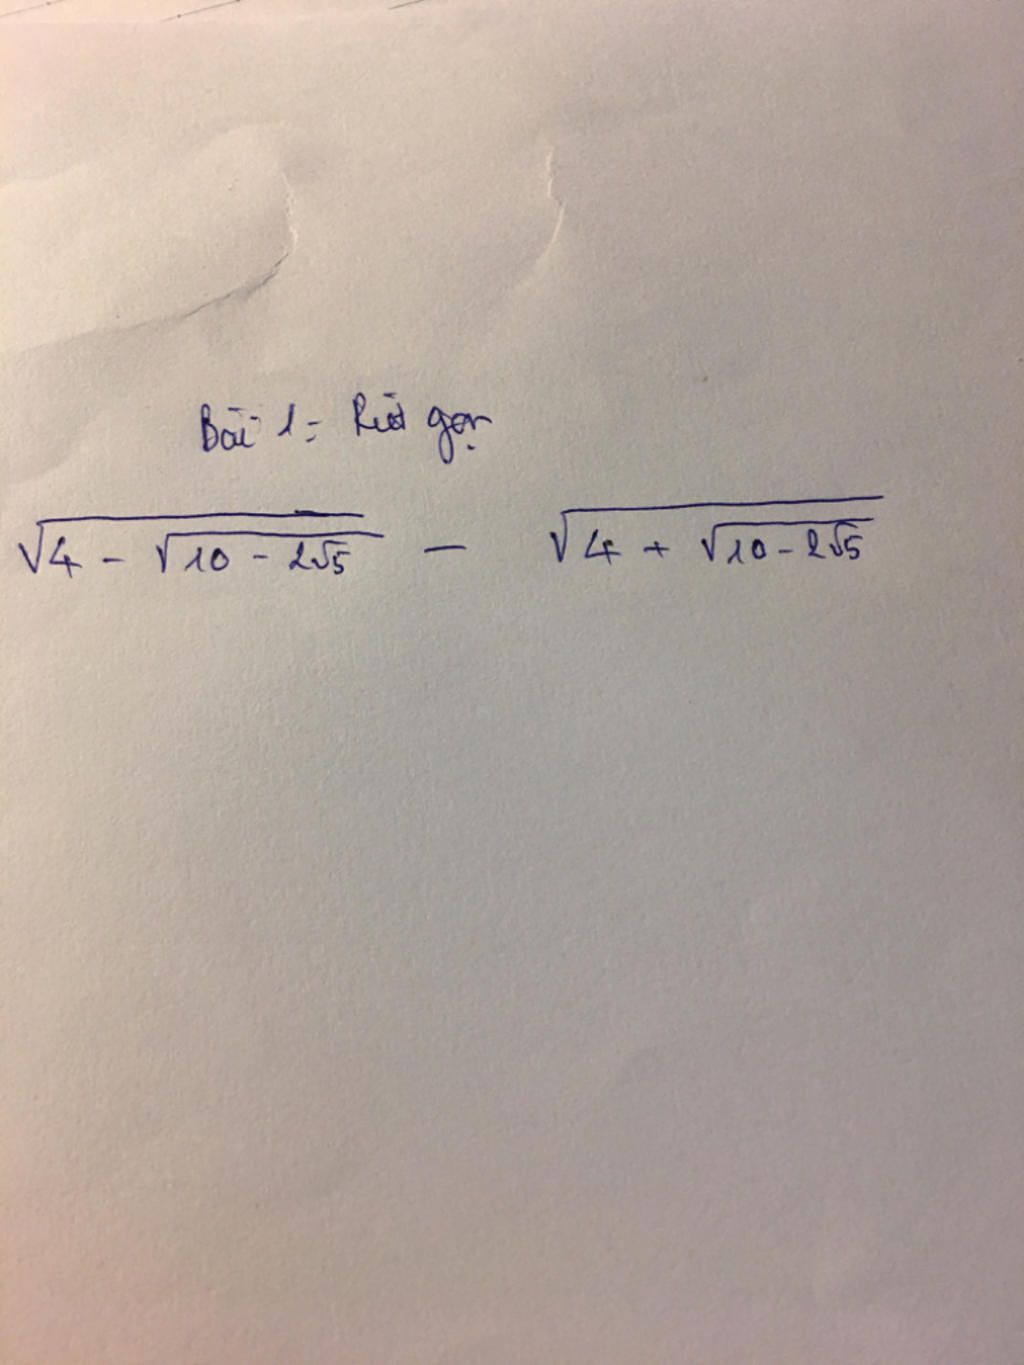 Bài 1: Rút gọn
√(4 - √(10 - 2√5)) - √(4 + √(10 - 2√5))